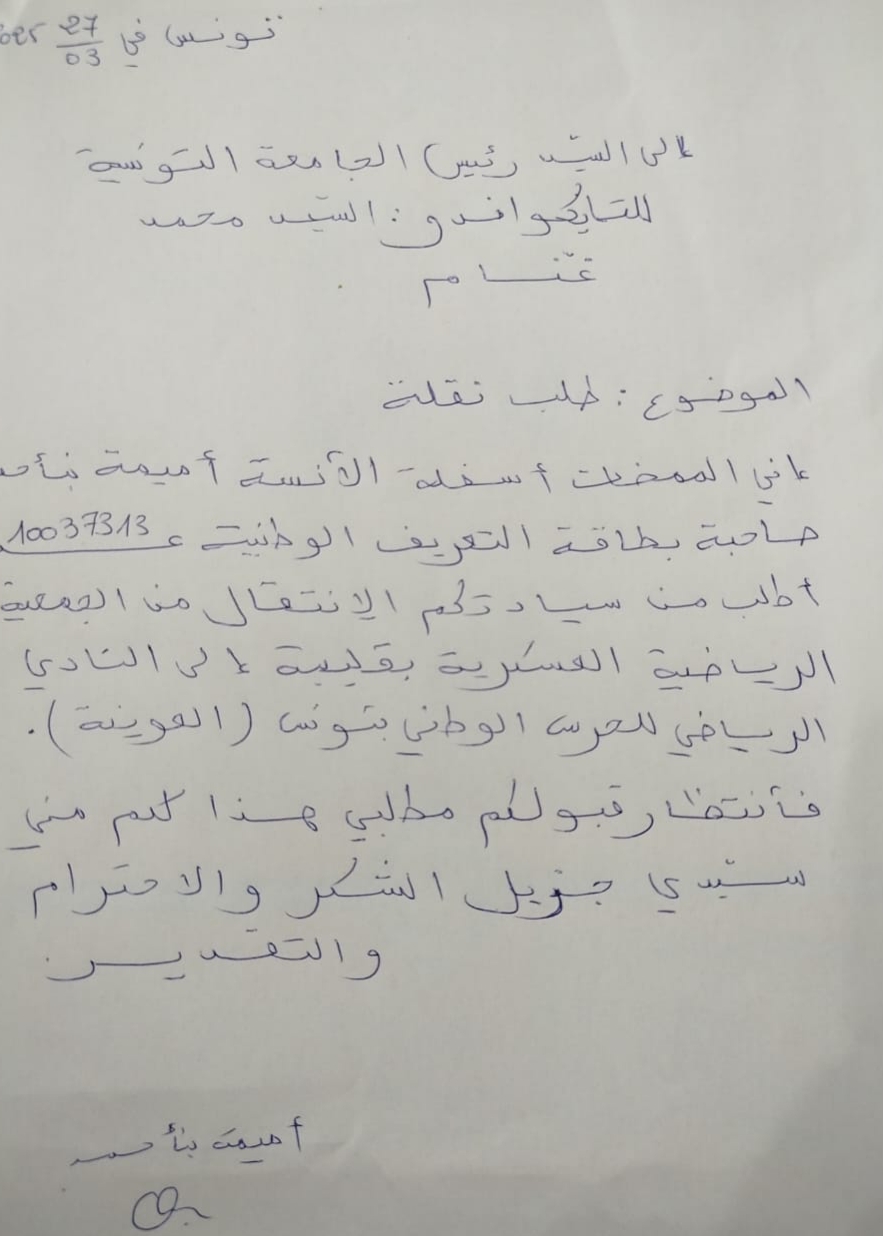 تونس في 27/03
إلى السيّد رئيس الجامعة التونسية
للتايكواندو : السيّد محمد
غنّام
الموضوع : طلب نقلة
إني الممضات أسفله الآنسة أميمة بنأحمد
صاحبة بطاقة التعريف الوطنية ع 10037313
أطلب من سيادتكم الإنتقال من الجمعية
الرياضية العسكرية بقليبية إلى النادي
الرياضي للحرس الوطني بتونس (العوينة).
فأنتظار قبولكم مطلبي هذا لكم مني
سيّدي جزيل الشكر والاحترام
والتقدير
أميمة بنأحمد